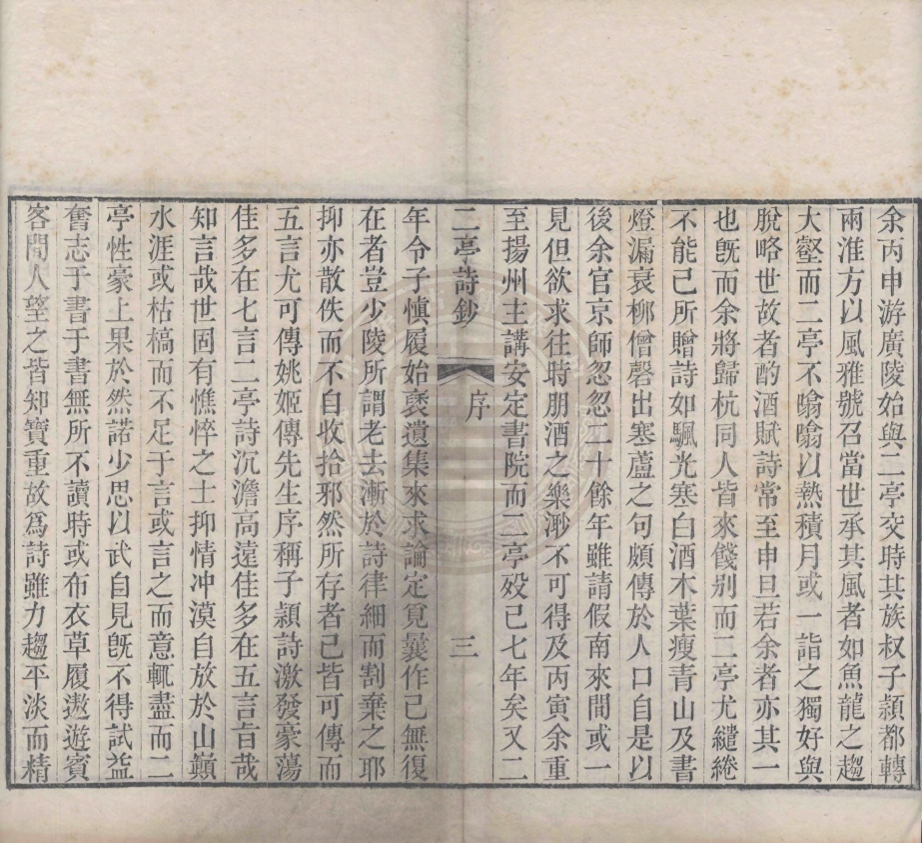 余丙申游廣陵始與二亭交時其族叔子潁都轉
兩淮方以風雅號召當世承其風者如魚龍之趨
大壑而二亭不暡暡以熱積月或一詣之獨好與
脫略世故者酌酒賦詩常至申旦若余者亦其一
也旣而余將歸杭同人皆來餞别而二亭尤繾綣
不能已所贈詩如颿光寒白酒木葉瘦青山及書
燈漏衰柳僧磬出寒蘆之句頗傳於人口自是以
後余官京師忽忽二十餘年雖請假南來間或一
見但欲求往時朋酒之樂渺不可得及丙寅余重
至揚州主講安定書院而二亭歿已七年矣又二
二亭詩鈔 序 三
年令子慎履始裒遺集來求論定覓曩作已無復
在者豈少陵所謂老去漸於詩律細而割棄之耶
抑亦散佚而不自收拾邪然所存者已皆可傳而
五言尤可傳姚姬傳先生序稱子潁詩激發豪蕩
佳多在七言二亭詩沉澹高遠佳多在五言旨哉
知言哉世固有憔悴之士抑情冲漠自放於山巔
水涯或枯槁而不足于言或言之而意輒盡而二
亭性豪上果於然諾少思以武自見旣不得試益
奮志于書于書無所不讀時或布衣草履遨遊賓
客間人望之皆知寶重故爲詩雖力趨平淡而精